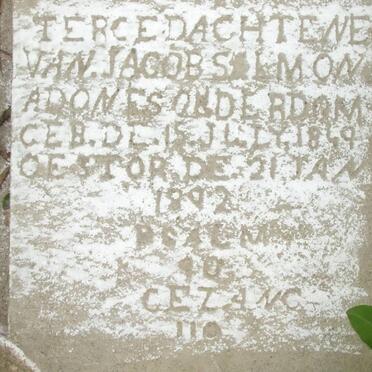 TER GEDACHTENE
VAN. JACOB SALMON
ADONES ONDERDAM
GEB. DE. 12 JULY. 1849
GESTOR. DE. 21. JAN
1892
PSALM
40
GEZANG
110